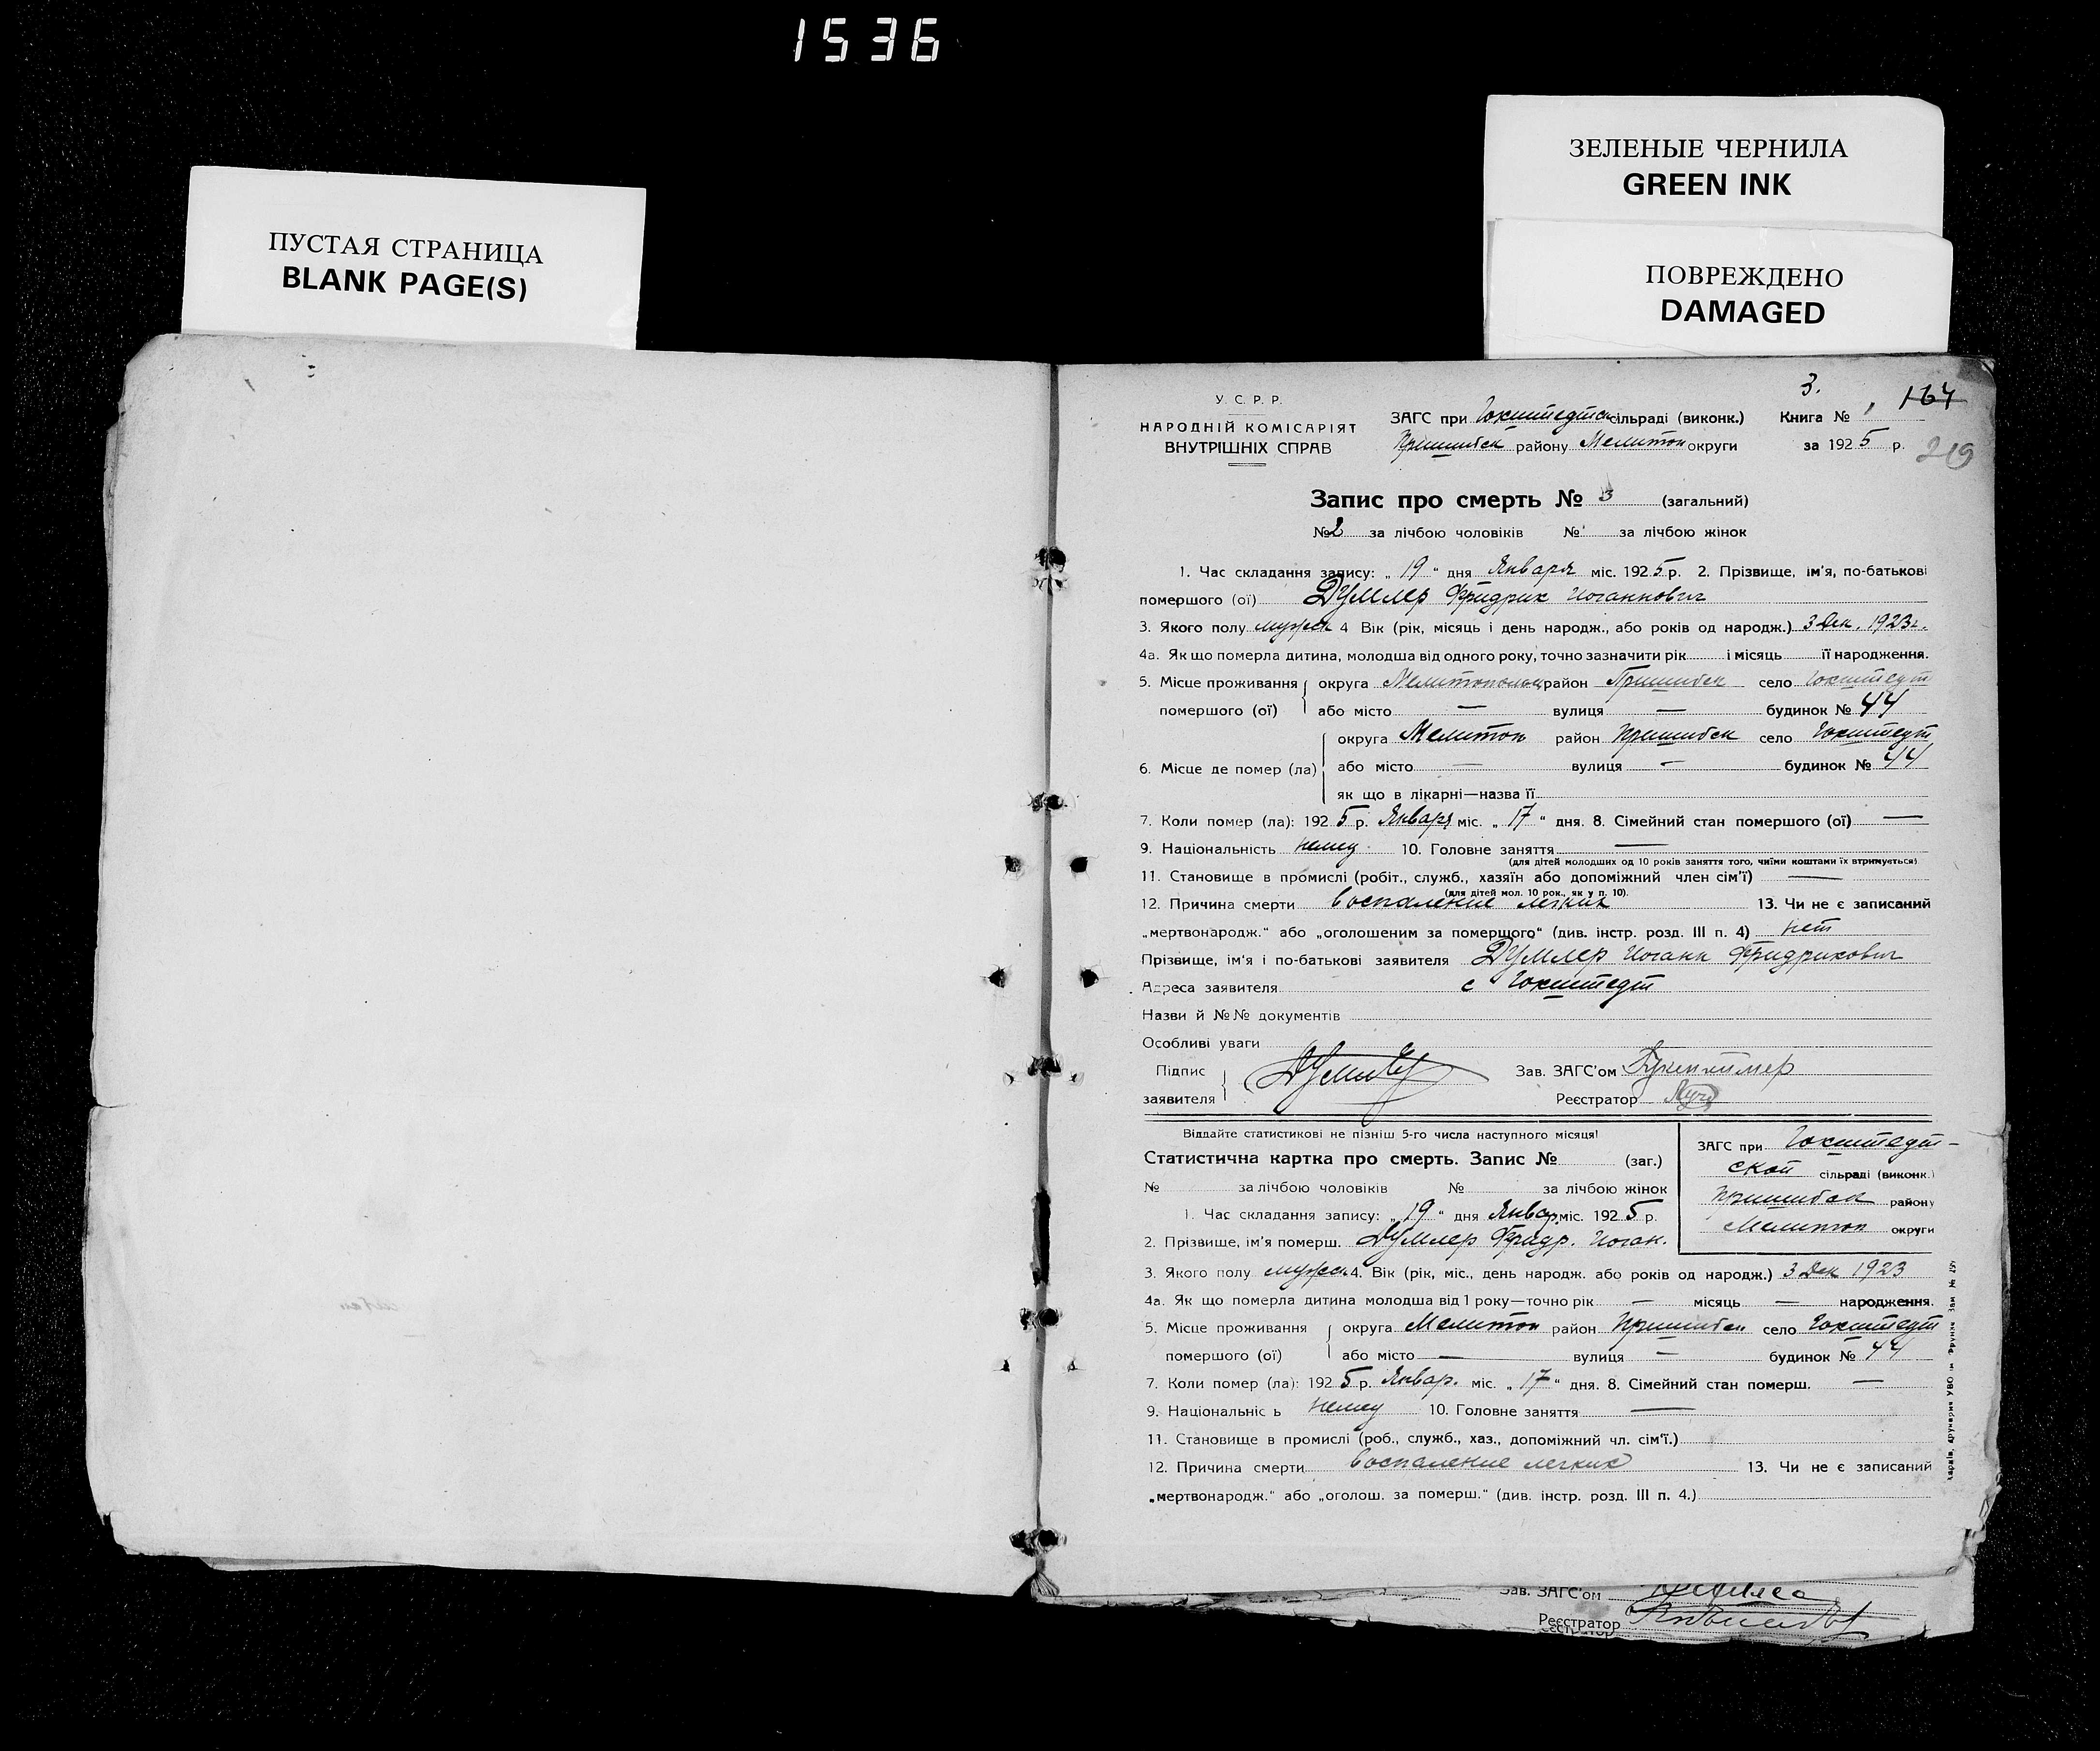 1536
ЗЕЛЕНЫЕ ЧЕРНИЛА
GREEN INK
ПУСТАЯ СТРАНИЦА
BLANK PAGE(S)
ПОВРЕЖДЕНО
DAMAGED
3.
У. С. Р. Р.
НАРОДНІЙ КОМІСАРІЯТ
ВНУТРІШНІХ СПРАВ
ЗАГС при Гокштедтск сільраді (виконк.) Книга № 1 167
Пришибск району Мелитоп округи за 1925 р. 219
Запис про смерть № 3 (загальний)
№ 2 за лічбою чоловіків № за лічбою жінок
1. Час складання запису: „ 19 “ дня Января міс. 1925 р. 2. Прізвище, ім'я, по-батькові
помершого (ої) Думлер Фридрих Иоганнович
3. Якого полу мужск 4 Вік (рік, місяць і день народж., або років од народж.) 3 Дек. 1923 г.
4а. Як що померла дитина, молодша від одного року, точно зазначити рік і місяць її народження.
5. Місце проживання округа Мелитопольск район Пришибск село Гокштедт
помершого (ої) або місто — вулиця — будинок № 44
округа Мелитоп район Пришибск село Гокштедт
6. Місце де помер (ла) або місто — вулиця — будинок № 44
як що в лікарні—назва її
7. Коли помер (ла): 1925 р. Января міс. „ 17 “ дня. 8. Сімейний стан помершого (ої) —
9. Національність немец 10. Головне заняття —
(для дітей молодших од 10 років заняття того, чиїми коштами їх втримується)
11. Становище в промислі (робіт., служб., хазяїн або допоміжний член сім'ї) —
(для дітей мол. 10 рок., як у п. 10).
12. Причина смерти воспаление легких 13. Чи не є записаний
„мертвонародж.“ або „оголошеним за померщого“ (див. інстр. розд. III п. 4) нет
Прізвище, ім'я і по-батькові заявителя Думлер Иоганн Фридрихович
Адреса заявителя с Гокштедт
Назви й №№ документів
Особливі уваги
Підпис
заявителя
Зав. ЗАГС'ом
Реєстратор
Віддайте статистикові не пізніш 5-го числа наступного місяця!
Статистична картка про смерть. Запис № (заг.)
№ за лічбою чоловіків № за лічбою жінок
ЗАГС при Гокштедт-
ской сільраді (виконк.)
Пришибск району
Мелитоп округи
1. Час складання запису: „ 19 “ дня Январ. міс. 1925 р.
2. Прізвище, ім'я померш. Думлер Фридр. Иоган.
3. Якого полу мужск 4. Вік (рік, міс., день народж. або років од народж.) 3 Дек 1923
4а. Як що померла дитина молодша від 1 року—точно рік — місяць — народження.
5. Місце проживання округа Мелитоп район Пришибск село Гокштедт
помершого (ої) або місто — вулиця — будинок № 44
7. Коли помер (ла): 1925 р. Январ. міс. „ 17 “ дня. 8. Сімейний стан померш. —
9. Національніс ь немец 10. Головне заняття —
11. Становище в промислі (роб., служб., хаз., допоміжний чл. сім'ї.)
12. Причина смерти воспаление легких 13. Чи не є записаний
„мертвонародж.“ або „оголош. за померш.“ (див. інстр. розд. III п. 4.)
Зав. ЗАГС'ом
Реєстратор